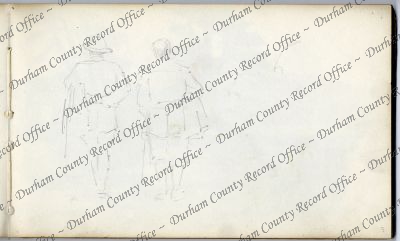 Durham County Record Office ~ Durham County Record Office ~ Durham County Record Office ~
Durham County Record Office ~ Durham County Record Office ~ Durham County Record Office ~
Durham County Record Office ~ Durham County Record Office ~ Durham County Record Office ~
Durham County Record Office ~ Durham County Record Office ~